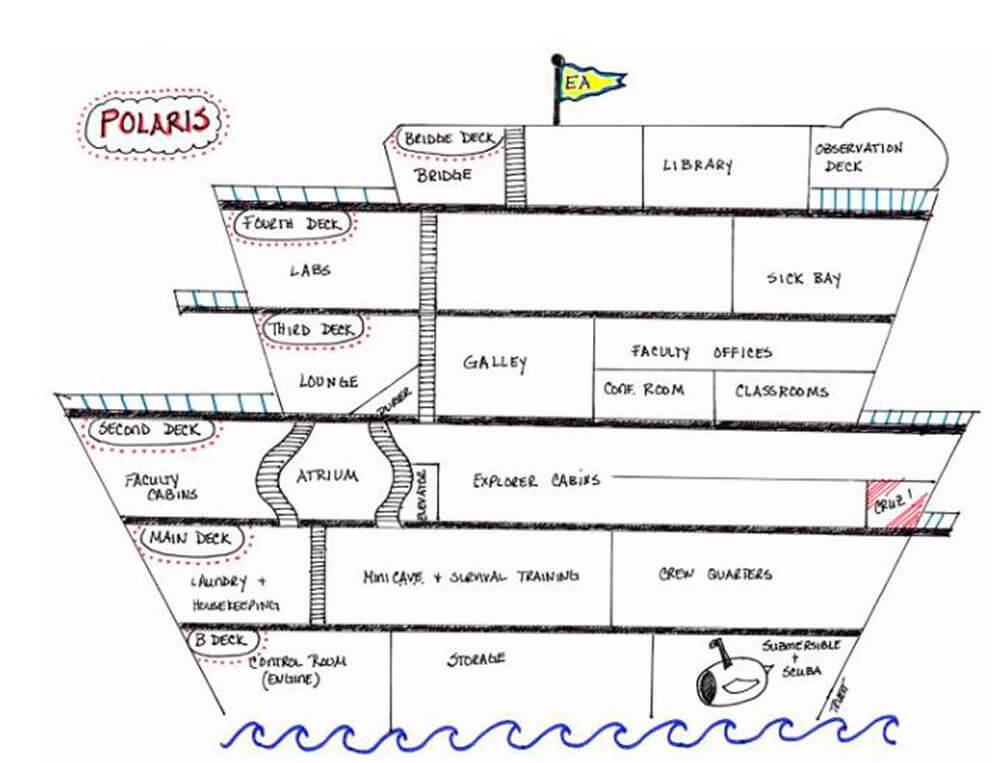 EA
POLARIS
BRIDGE DECK
BRIDGE
LIBRARY
OBSERVATION
DECK
FOURTH DECK
LABS
SICK BAY
THIRD DECK
LOUNGE
GALLEY
FACULTY OFFICES
CONF. ROOM
CLASSROOMS
SECOND DECK
FACULTY
CABINS
ATRIUM
ELEVATOR
EXPLORER CABINS
CRUZ!
MAIN DECK
LAUNDRY +
HOUSEKEEPING
MINI CAVE + SURVIVAL TRAINING
CREW QUARTERS
B DECK
CONTROL ROOM
(ENGINE)
STORAGE
SUBMERSIBLE
+
SCUBA